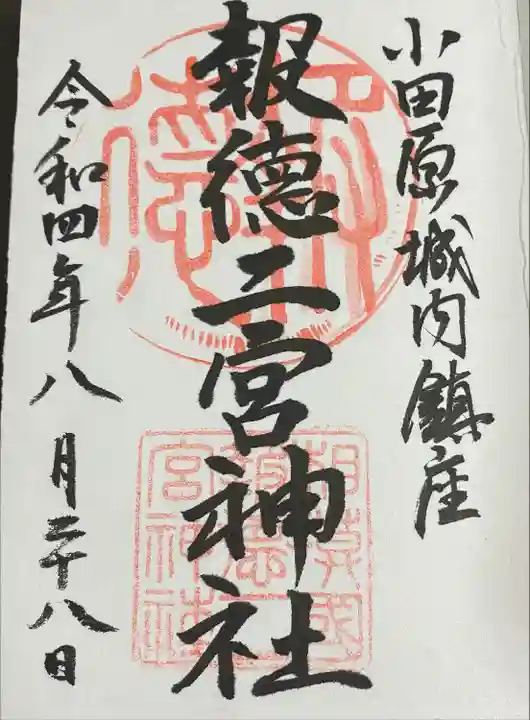 小田原城内鎮座
報徳二宮神社
令和四年八月二十八日
報徳
相模國
報徳二
宮神社